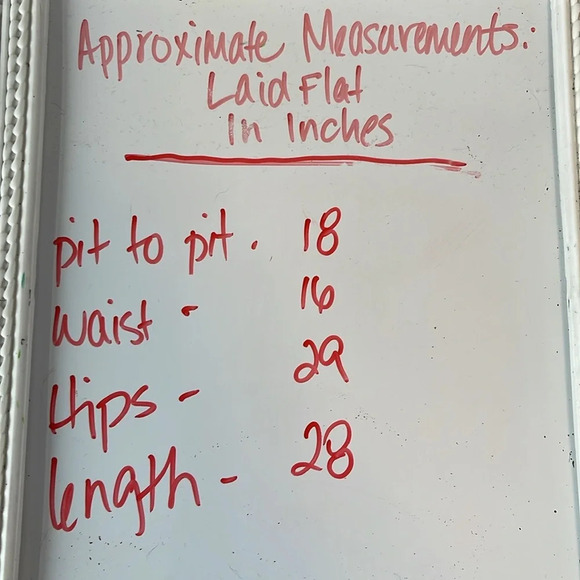 Approximate Measurements:
Laid Flat
In Inches
pit to pit. 18
waist - 16
Hips - 29
length - 28